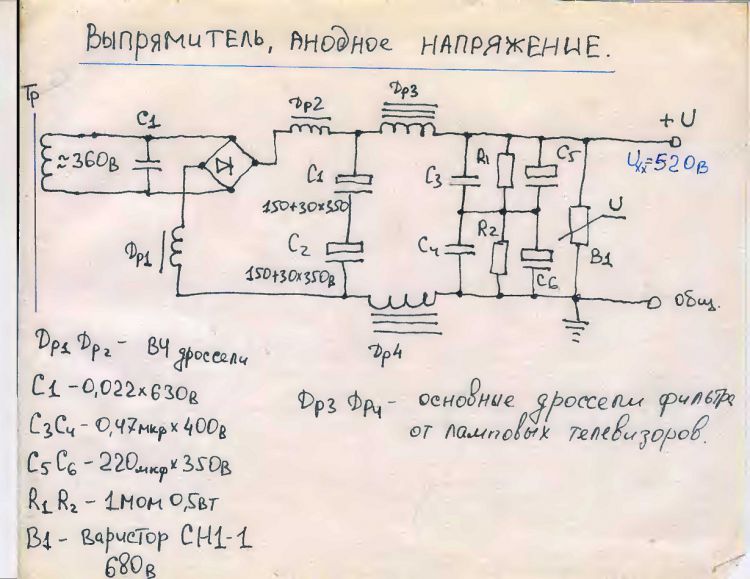 Выпрямитель, анодное напряжение.
Тр
Др2
Др3
C1
≈360в
+U
Uхх=520в
C1
150+30х350
C2
150+30х350в
C3
C4
R1
R2
C5
C6
U
В1
Др1
Др4
общ.
Др1 Др2 - ВЧ дроссели
C1 - 0,022х630в
C3C4 - 0,47мкф х 400в
C5C6 - 220мкф х 350в
R1 R2 - 1мом 0,5вт
В1 - варистор СН1-1
680в
Др3 Др4 - основные дроссели фильтра
от ламповых телевизоров.